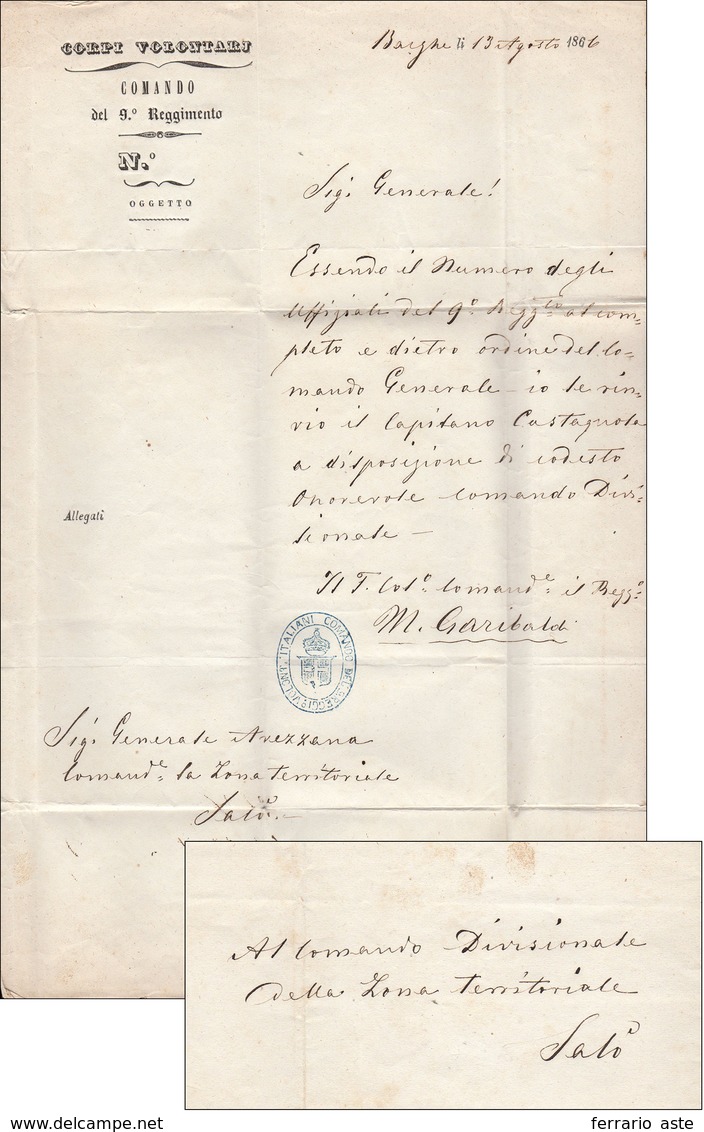 CORPI VOLONTARJ
COMANDO
del 9.º Reggimento
N.º
OGGETTO
Barghe li 13 Agosto 1866
Sig. Generale!
Essendo il Numero degli
Uffiziali del 9º Reggto. al com-
pleto e dietro ordine del Co-
mando Generale - io le rin-
vio il Capitano Castagnola
a disposizione di codesto
Onorevole Comando Divi-
sionale -
Allegati
Il T. Colo. Comande. il Regg.º
M. Garibaldi
VOLONT. ITALIANI COMANDO DEL 9 REGGI.º
Sig. Generale Avezzana
Comande. la Zona territoriale
Salò -
Al Comando Divisionale
della Zona territoriale
Salò
www.delcampe.net
ferrario aste